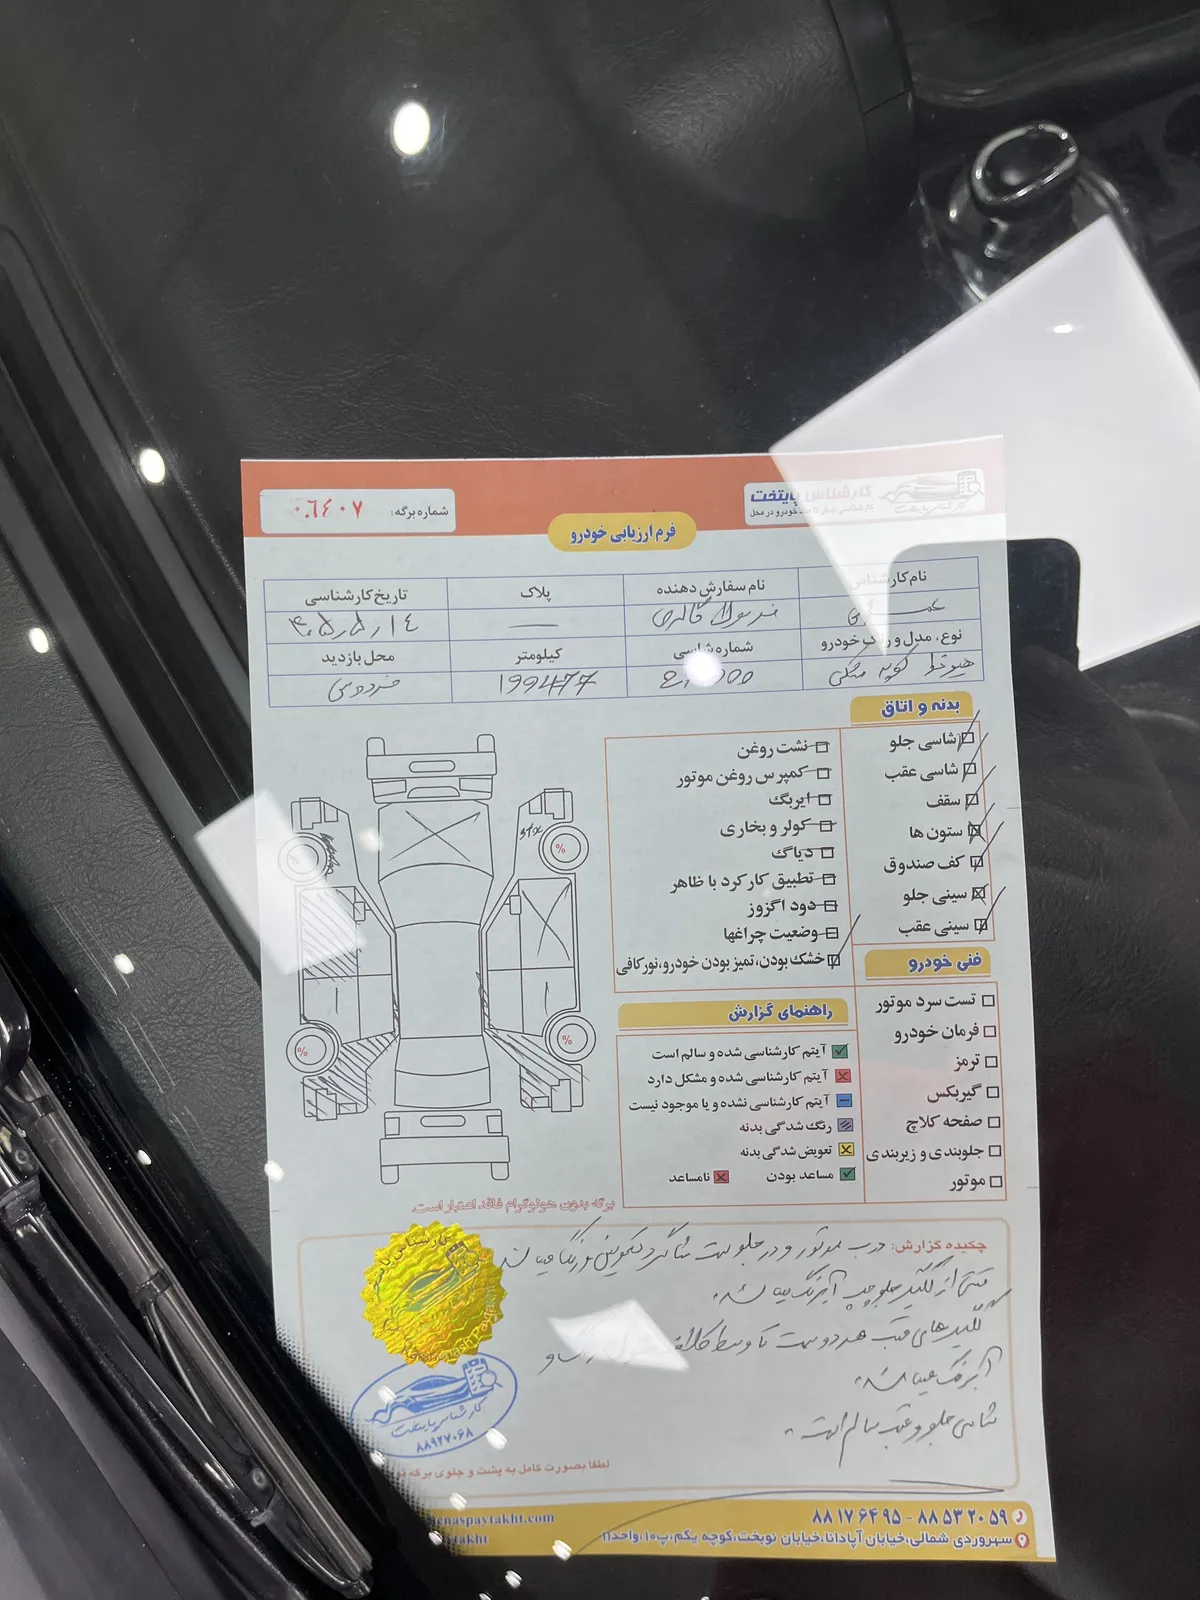 کارشناس پایتخت
خودرو در محل
شماره برگه: ۰۶۴۰۷
فرم ارزیابی خودرو
نام کارشناس
نام سفارش دهنده
پلاک
تاریخ کارشناسی
نوع، مدل و رنگ خودرو
شماره شاسی
کیلومتر
محل بازدید
کوپه مشکی
199477
فردوسی
بدنه و اتاق
شاسی جلو
شاسی عقب
سقف
ستون ها
کف صندوق
سینی جلو
سینی عقب
نشت روغن
کمپرس روغن موتور
ایربگ
کولر و بخاری
دیاگ
تطبیق کارکرد با ظاهر
دود اگزوز
وضعیت چراغها
خشک بودن، تمیز بودن خودرو، نور کافی
فنی خودرو
تست سرد موتور
فرمان خودرو
ترمز
گیربکس
صفحه کلاچ
جلوبندی و زیربندی
موتور
راهنمای گزارش
آیتم کارشناسی شده و سالم است
آیتم کارشناسی شده و مشکل دارد
آیتم کارشناسی نشده و یا موجود نیست
رنگ شدگی بدنه
تعویض شدگی بدنه
مساعد بودن
نامساعد
% %
% %
برگه بدون هولوگرام فاقد اعتبار است.
چکیده گزارش: درب موتور و درب جلو سمت شاگرد تعویض و رنگ میباشد
از گلگیر جلو چپ آبرنگ میباشد
گلگیرهای عقب هر دو سمت تا وسط و
آبرنگ میباشد
شاسی جلو و عقب سالم است
کارشناس پایتخت
۸۸۹۲۷۰۶۸
لطفا بصورت کامل به پشت و جلوی برگه
۸۸۱۷۶۴۹۵ - ۸۸۵۳۲۰۵۹
سهروردی شمالی، خیابان آپادانا، خیابان نوبخت، کوچه یکم، پ۱۰، واحد۱۱
enaspaytakht.com